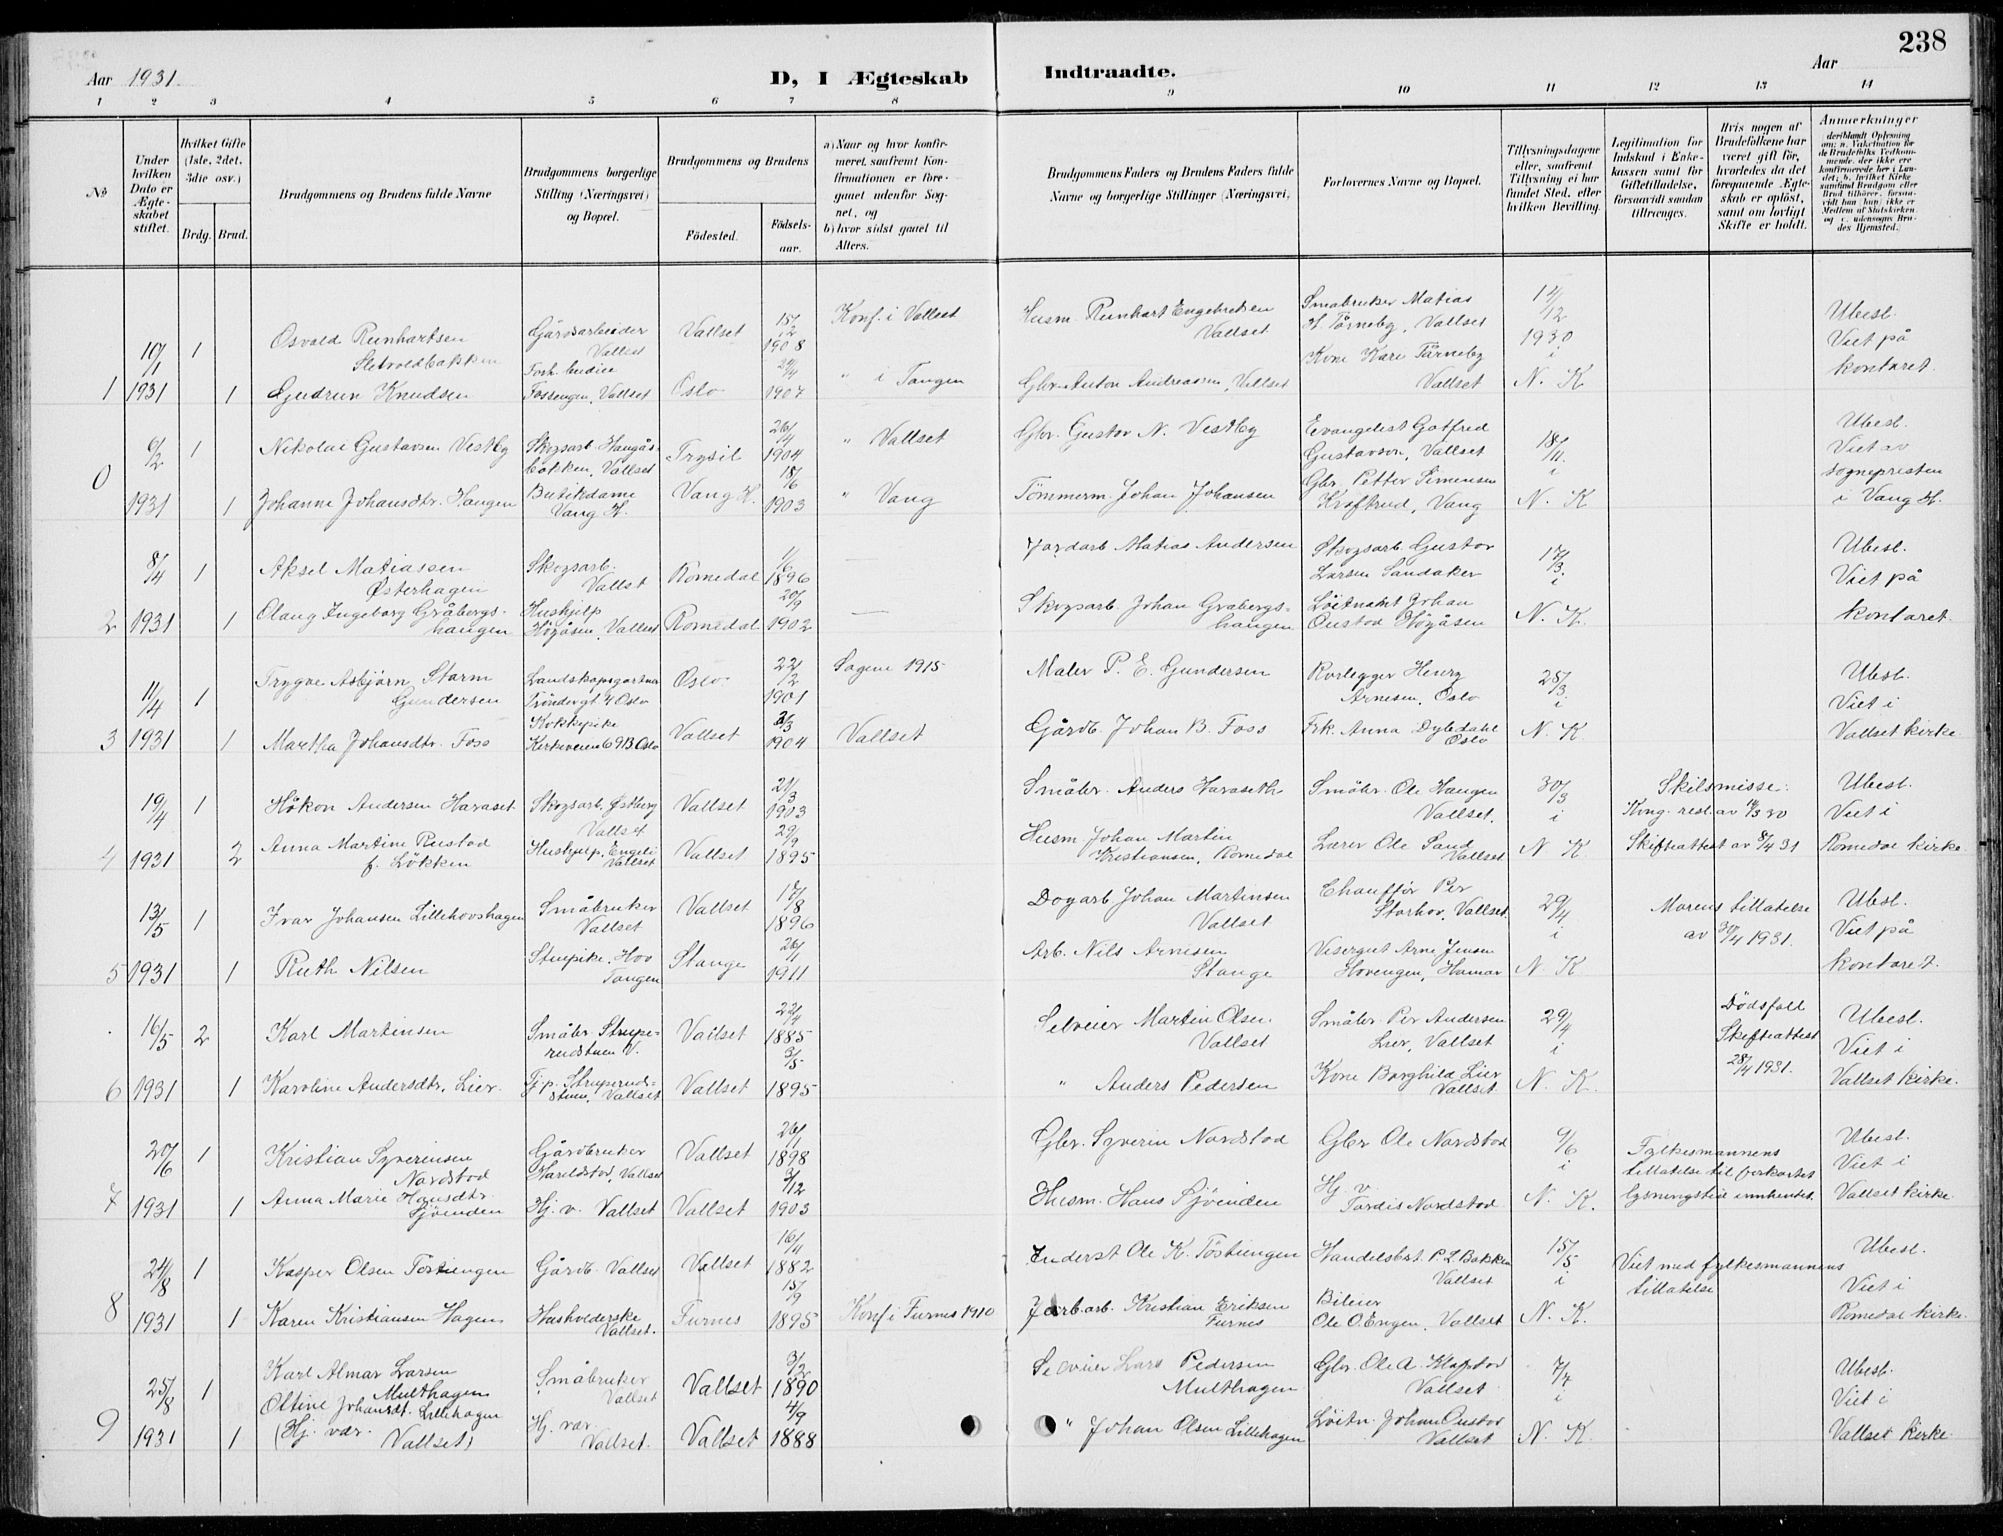 238
Aar 1931.
D, I Ægteskab Indtraadte.
Aar
1 2 3 4 5 6 7 8 9 10 11 12 13 14
No
Under hvilken Dato er Ægteskabet stiftet.
Hvilket Gifte (1ste, 2det, 3die osv.)
Brdg. Brud.
Brudgommens og Brudens fulde Navne
Brudgommens borgerlige Stilling (Næringsvei) og Bopæl.
Brudgommens og Brudens
Fødested.
Fødselsaar.
a) Naar og hvor konfirmeret, saafremt Konfirmationen er foregaaet udenfor Sognet, og
b) hvor sidst gaaet til Alters.
Brudgommens Faders og Brudens Faders fulde Navne og borgerlige Stillinger (Næringsvei).
Forlovernes Navne og Bopæl.
Tillysningsdagene eller, saafremt Tillysning ei har fundet Sted, efter hvilken Bevilling.
Legitimation for Indskud i Enkekassen samt for Giftetilladelse, forsaavidt saadan tiltrænges.
Hvis nogen af Brudefolkene har været gift før, hvorledes da det foregaaende Ægteskab er opløst, samt om lovligt Skifte er holdt.
Anmerkninger
1 10/1 1931 1 Osvald Reinhartsen Sletvoldbakken Gårdsarbeider Vallset Vallset 15/12 1908 Konf. i Vallset Husm. Reinhart Engebretsen Vallset Småbruker Matias H. Tårneby, Vallset 14/12 1930 i N. K Ubesl. Viet på kontoret.
1 Gudrun Knudsen Fossengen, Vallset Oslo 24/4 1907 " i Tangen Gbr. Anton Andreassen, Vallset Kone Kari Tårneby Vallset
0 6/2 1931 1 Nikolai Gustavsen Vestby Skogsarb. Haugåsbakken, Vallset Trysil 26/4 1904 " Vallset Gbr. Gustav N. Vestby Evangelist Gotfred Gustavson, Vallset 18/11. i N. K Ubesl. Viet av sognepresten i Vang H.
1 Johanne Johansdtr. Hangen Butikdame Vang H. Vang H. 18/6 1903 " Vang Tömmerm. Johan Johansen Gbr. Petter Simensen Kraftrud, Vang
2 8/4 1931 1 Aksel Matiassen Østerhagen Skogsarb. Vallset Romedal 1/6 1896 — Jordarb. Matias Andersen Skogsarb. Gustav Larsen Sandaker 17/3. i N. K. Ubesl. Viet på kontoret.
1 Olaug Ingeborg Gråbergshaugen Hushjelp Högåsen, Vallset Romedal 20/9 1902 — Skogsarb. Johan Grabergshaugen Löitnant Johan Oustad Högåsen
3 11/4 1931 1 Trygve Asbjörn Storm Gundersen Landskapsgartner Tröndergt 4 Oslo Oslo 22/2 1901 Sagene 1915 Maler P. E. Gundersen Rörlegger Henry Arnesen, Oslo 28/3. i N. K. Ubesl. Viet i Vallset kirke.
1 Martha Johansdtr. Foss Kokkepike Kirkeveien 69B. Oslo Vallset 3/3 1904 Vallset Gårdb. Johan B. Foss Frk. Anna Dybdahl Oslo
4 19/4 1931 1 Håkon Andersen Haraset Skogsarb. Østberg Vallset Vallset 21/3 1903 Småbr. Anders Haraseth Småbr. Ole Haugen Vallset. 30/3 i N K. Skilsmisse. Kong. resl. av 14/3 30 Skifteattest av 8/4 31 Ubesl. Viet i Romedal kirke.
2 Anna Martine Rustad f. Lökken Hushjelp, Engeli Vallset Vallset 29/9 1895 Husm Johan Martin Kristiansen, Romedal Lærer Ole Sand Vallset
5 13/5 1931 1 Ivar Johansen Lillehovshagen Småbruker Vallset Vallset 17/8 1896 Dagarb. Johan Martinsen Vallset Chauffør Per Storhov, Vallset. 29/4 i N K Morens tillatelse av 30/4 1931. Ubesl. Viet på kontoret.
1 Ruth Nilsen Stuepike, Hov Tangen Stange 26/1 1911 Arb. Nils Arnesen Stange Visergut Arne Jensen Hovengen, Hamar
6 16/5 1931 2 Karl Martinsen Småbr. Struperudstuen V. Vallset 22/4 1885 Selveier Martin Olsen Vallset Småbr. Per Andersen Lier, Vallset 29/4 i N. K. Dödsfall Skifteattest 28/4 1931. Ubesl. Viet i Vallset kirke.
1 Karoline Andersdtr. Lier. Tj.p. Struperudstuen, Vallset Vallset 3/5 1895 " Anders Pedersen Kone Borghild Lier Vallset
7 20/6 1931 1 Kristian Syverinsen Nordstod Gårdbruker Vallset Vallset 26/1 1898 Gbr. Syverin Nordstod Gbr Ole Nordstod 9/6 i N. K. Fylkesmannens tillatelse til forkortet lysningstid innhentet. Ubesl. Viet i Vallset kirke
1 Anna Marie Hansdtr. Sjöenden Hj. v. Vallset Vallset 3/12 1903 Husm. Hans Sjöenden Hj. v. Tordis Nordstod
8 24/8 1931 1 Kasper Olsen Töstiengen Gårdb. Vallset Vallset 16/4 1882 Inderst Ole K. Töstiengen Handelsbst. P. L Bakken Vallset 15/5 i N. K. Viet med fylkesmannens tillatelse Ubesl. Viet i Romedal kirke.
1 Karen Kristiansen Hagen Husholderske Vallset. Furnes 15/9 1895 Konf i Furnes 1910 Jarb.arb. Kristian Eriksen Furnes Bileier Ole O. Engen, Vallset
9 25/8 1931 1 Karl Almar Larsen Multhagen Småbruker Vallset Vallset 3/2 1890 Selveier Lars Pedersen Multhagen Gbr. Ole A. Klapstod Vallset 7/4 i N. K. Ubesl. Viet i Vallset kirke
1 Oltine Johansdt. Lillehagen (Hj. vær. Vallset) Hj. vær. Vallset. Vallset 4/9 1888 " Johan Olsen Lillehagen Löitn. Johan Oustad Vallset